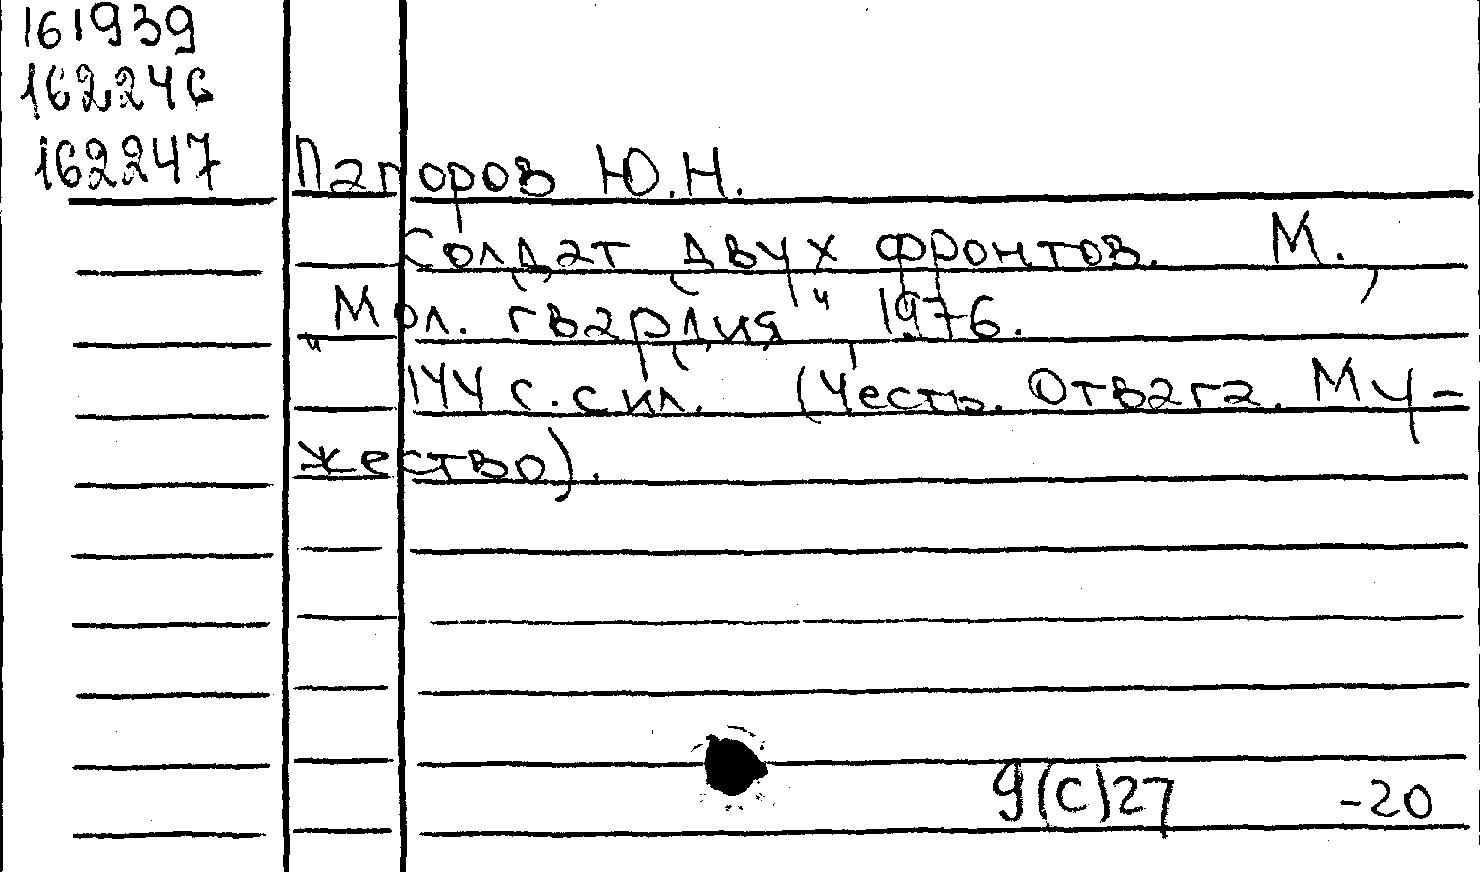 161939
162246
162247
Папоров Ю.Н.
Солдат двух фронтов. М.,
"Мол. гвардия" 1976.
144 с. с ил. (Честь. Отвага. Му-
жество).
9(С)27 -20